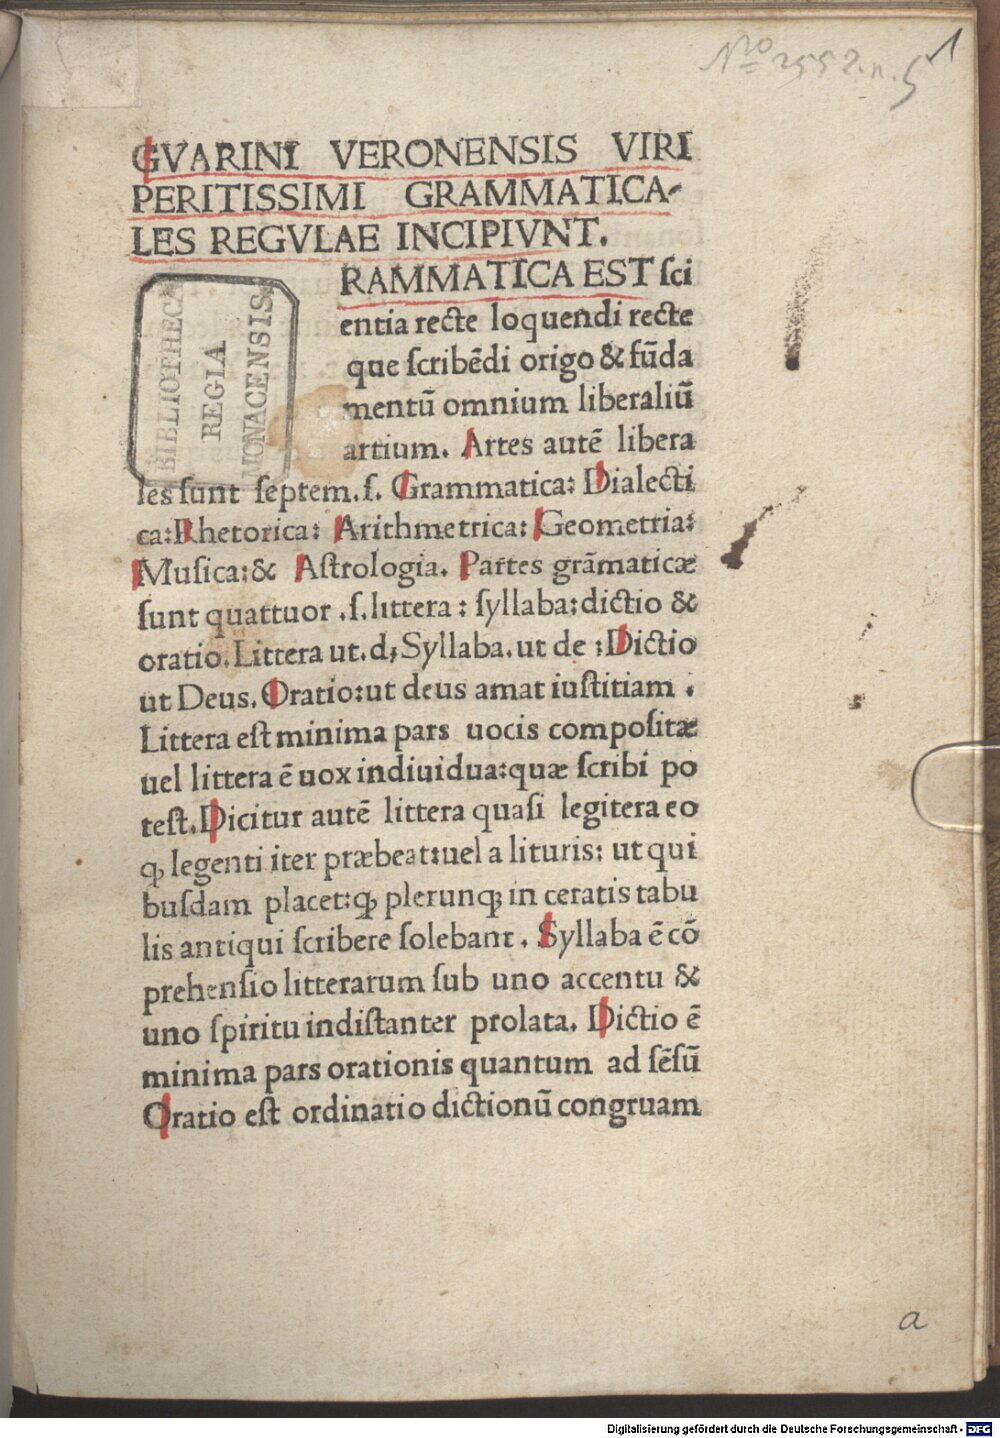 Nro 2552.n.5 1
GVARINI VERONENSIS VIRI
PERITISSIMI GRAMMATICA-
LES REGVLAE INCIPIVNT.
RAMMATICA EST ſci
entia recte loquendi recte
que ſcribēdi origo & fūda
mentū omnium liberaliū
artium. Artes autē libera
les ſunt ſeptem.ſ. Grammatica: Dialecti
ca:Rhetorica: Arithmetrica: Geometria:
Muſica:& Aſtrologia. Partes grāmaticæ
ſunt quattuor .ſ.littera: ſyllaba:dictio &
oratio.Littera ut.d;Syllaba.ut de :Dictio
ut Deus.Oratio:ut deus amat iuſtitiam .
Littera eſt minima pars uocis compoſitæ
uel littera ē uox indiuidua:quæ ſcribi po
teſt.Dicitur autē littera quaſi legitera eo
ꝙ legenti iter præbeat:uel a lituris: ut qui
buſdam placet:ꝙ plerunꝙ in ceratis tabu
lis antiqui ſcribere ſolebant. Syllaba ē cō
prehenſio litterarum ſub uno accentu &
uno ſpiritu indiſtanter prolata. Dictio ē
minima pars orationis quantum ad ſēſū
Oratio eſt ordinatio dictionū congruam
BIBLIOTHECA
REGIA
MONACENSIS
a
Digitalisierung gefördert durch die Deutsche Forschungsgemeinschaft - DFG